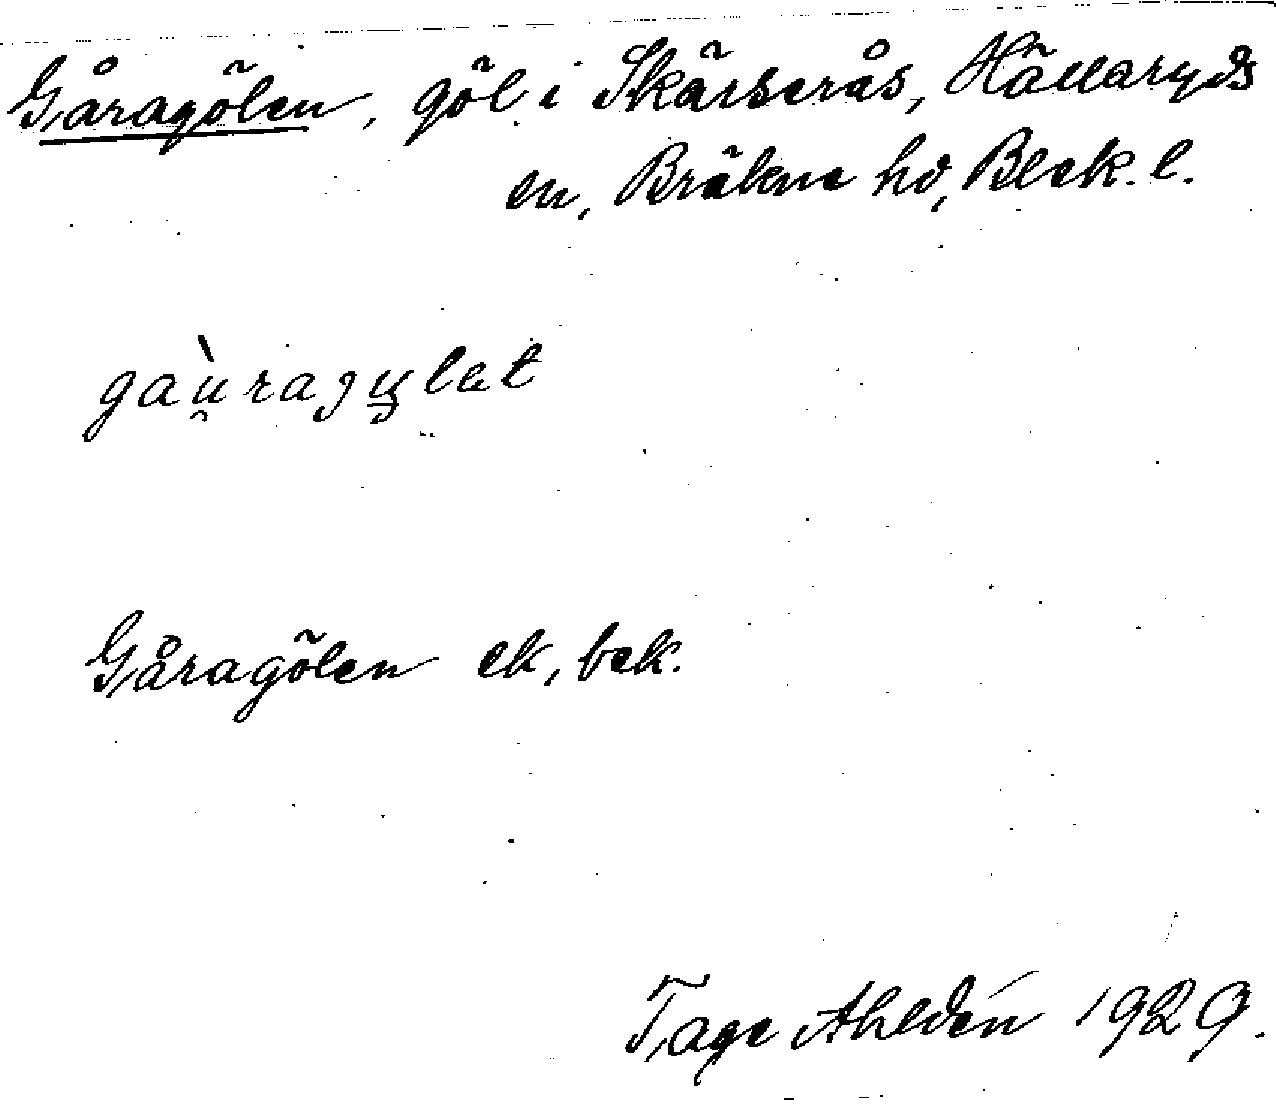 Gåragölen, göl i Skärserås, Hällaryds
sn, Bräkne hd, Blek. l.
gaù̯ragy̠let
Gåragölen ek, bek.
Tage Ahldén 1929.